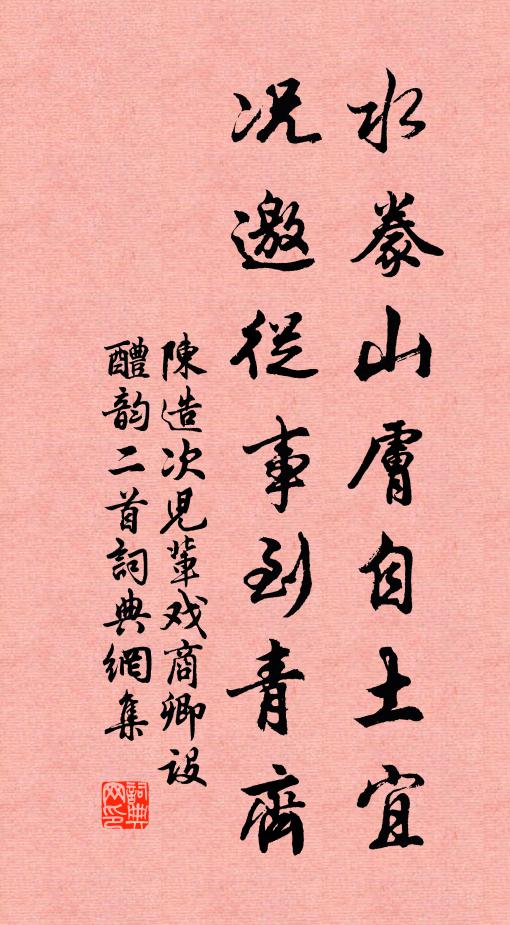 水豢山膚自土宜
况邀從事到青齊
陳造次児輩戏商卿设
醴韵二首詞典網集
詞典
网印